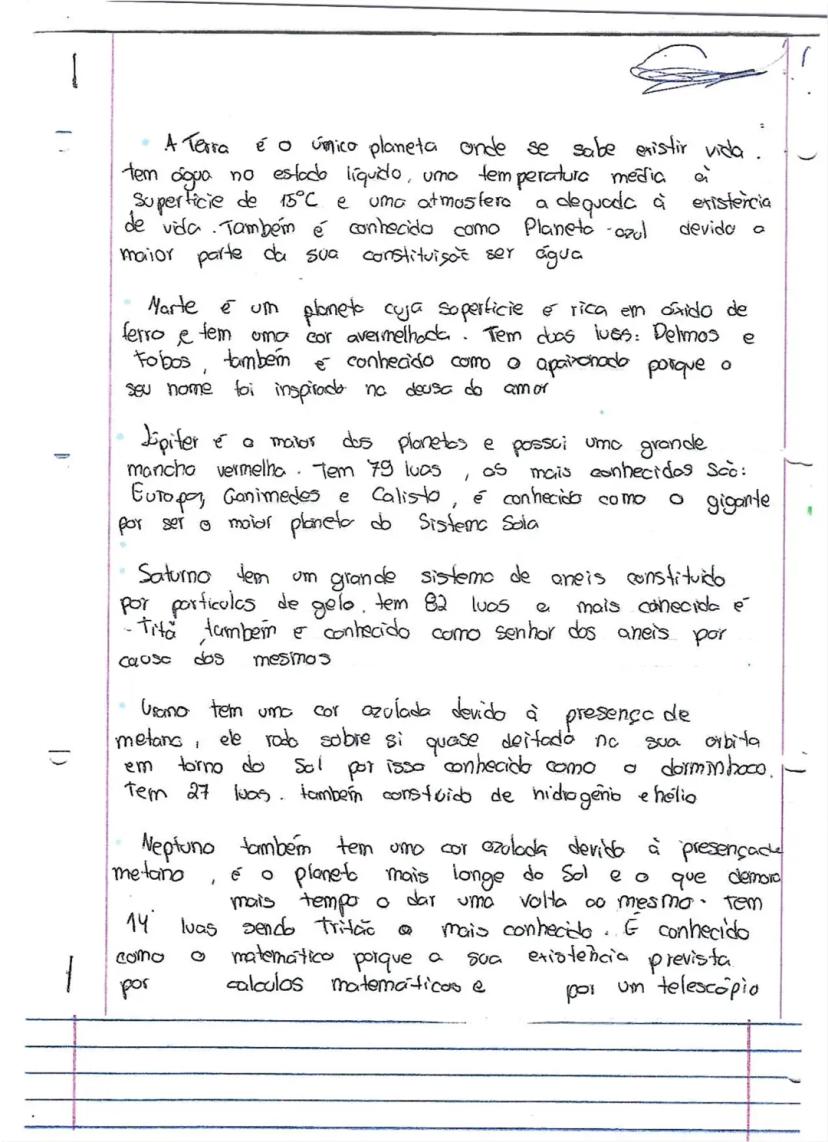 A Terra é o único planeta onde se sabe existir vida.
tem água no estado líquido, uma temperatura média à
superfície de 15°C e uma atmosfera adequada à existência
de vida. Também é conhecida como Planeta-azul devido a
maior parte da sua constituição ser água
Marte é um planeta cuja superfície é rica em óxido de
ferro e tem uma cor avermelhada. Tem duas luas: Deimos e
Fobos, também é conhecido como o apaixonado porque o
seu nome foi inspirado na deusa do amor
Júpiter é o maior dos planetas e possui uma grande
mancha vermelha. Tem 79 luas, as mais conhecidas São:
Europa, Ganimedes e Calisto, é conhecido como o gigante
por ser o maior planeta do Sistema Sola
Saturno tem um grande sistema de aneis constituido
por particulas de gelo. tem 82 luas a mais conhecida é
-Titã também é conhecido como senhor dos aneis por
causa dos mesmos
Urano tem uma cor azulada devido à presença de
metano, ele roda sobre si quase deitado na sua orbita
em torno do Sol por isso conhecido como o dorminhoco.
Tem 27 luas. também constuido de hidrogénio e hélio
Neptuno também tem uma cor azulada devido à presença de
metano, é o planeta mais longe do Sol e o que demora
mais tempo a dar uma volta ao mesmo. Tem
14 luas sendo Tritão a mais conhecido. É conhecido
como o matemático porque a sua existência prevista
por calculos matemáticos e por um telescópio